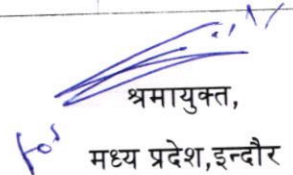 श्रमायुक्त,
मध्य प्रदेश,इन्दौर